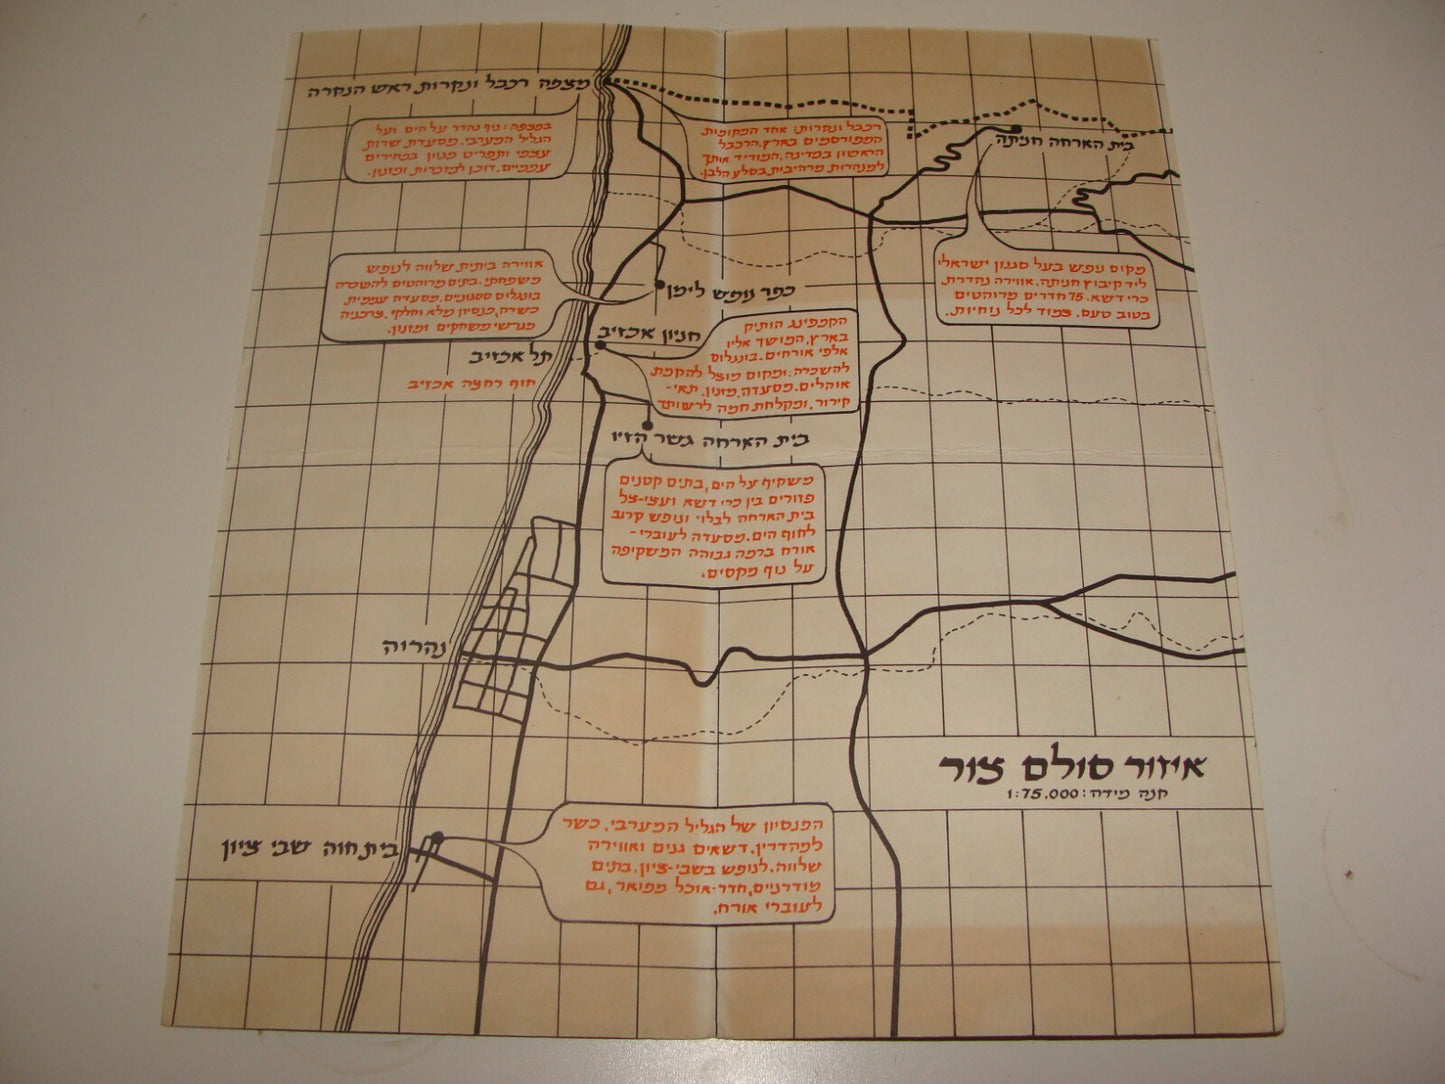 מצפה רכבל ונקרות ראש הנקרה
במצפה: נוף נהדר על הים ועל
הגליל המערבי. מסעדת שרות
עצמי ותפריט מגוון במחירים
עממיים. דוכן למזכרות ומזנון.
רכבל ונקרות: אחד המקומות
המפורסמים בארץ. הרכבל
הראשון במדינה, המוריד אותך
למנהרות מרהיבות בסלע הלבן.
בית הארחה חניתה
מקום נופש בעל סגנון ישראלי
ליד קיבוץ חניתה. אווירה נהדרת
כרי דשא. 75 חדרים מרוהטים
בטוב טעם. צמוד לכל נוחיות.
אווירה ביתית שלווה לנופש
משפחתי. בתים מרוהטים להשכרה
בונגלוס ססגוניים. מסעדה עממית
כשרה, פנסיון מלא וחלקי. צרכניה
מגרשי משחקים ומזנון.
כפר נופש לימן
חניון אכזיב
הקמפינג הותיק
בארץ, המושך אליו
אלפי אורחים. בונגלוס
להשכרה: ומקום מוצל להקמת
אוהלים. מסעדה, מזנון, תאי-
קירור, ומקלחת חמה לרשותך
תל אכזיב
חוף רחצה אכזיב
בית הארחה גשר הזיו
משקיף על הים, בתים קטנים
פזורים בין כרי דשא ועצי-צל
בית הארחה לבלוי ונופש קרוב
לחוף הים. מסעדה לעוברי-
אורח ברמה גבוהה המשקיפה
על נוף מקסים.
נהריה
איזור סולם צור
קנה מידה: 1:75.000
בית חוה שבי ציון
הפנסיון של הגליל המערבי. כשר
למהדרין. דשאים גנים ואווירה
שלווה. לנופש בשבי-ציון. בתים
מודרנים, חדר-אוכל מפואר, גם
לעוברי אורח.